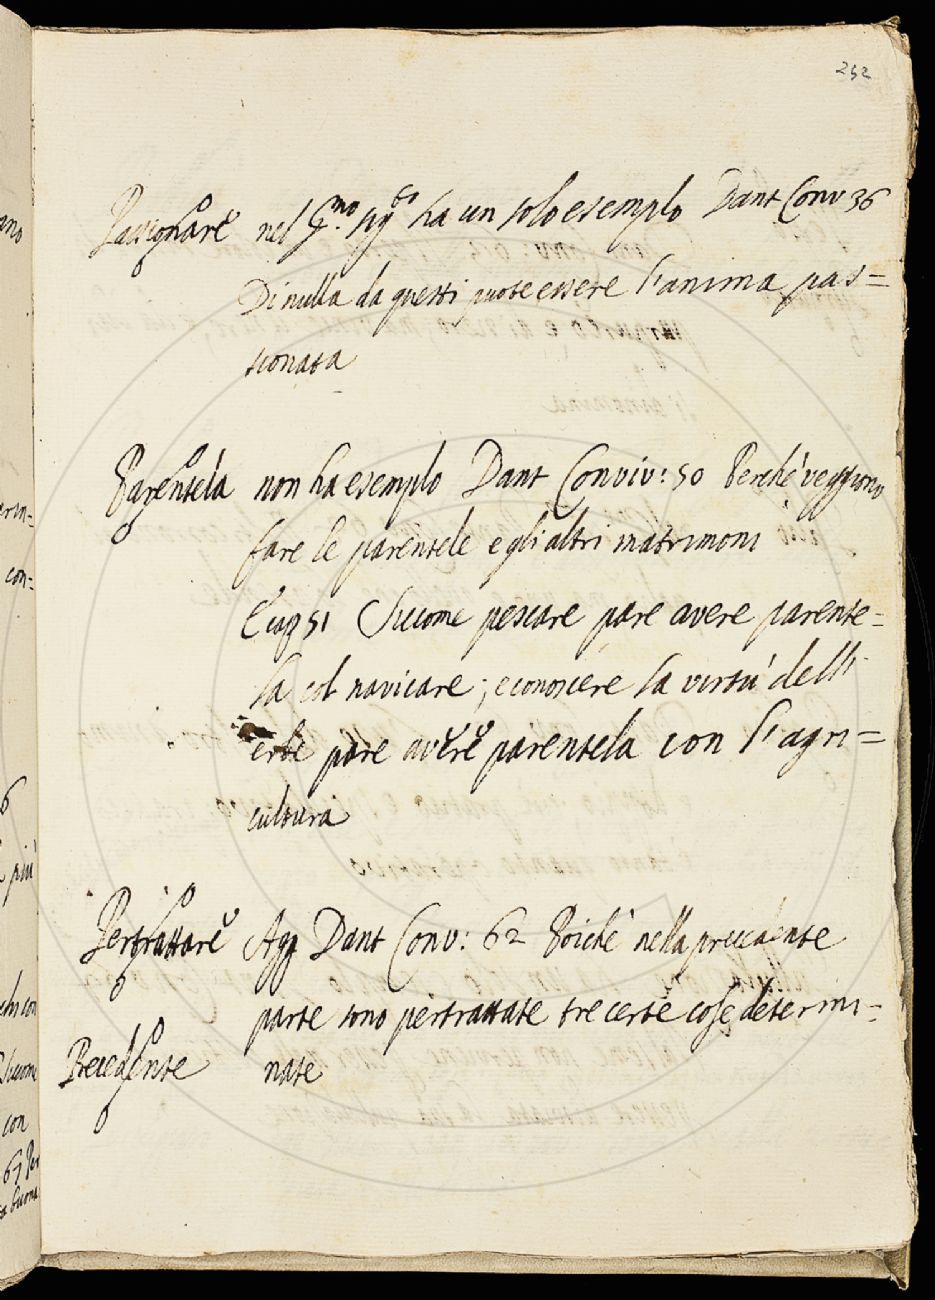 252
Passionare nel p.mo sig.to ha un solo esemplo Dant Conv 36
Di nulla da questi puote essere l'anima pas=
sionata
Parentela non ha esemplo Dant Conviv: 50 Perchè veggiono
fare le parentele e gli altri matrimoni
E cap 51 Siccome pescare pare avere parente=
la col navicare; e conoscere la virtù dell'
erbe pare avere parentela con l'agri=
cultura
Pertrattare Agg Dant Conv: 62 Poichè nella precedente
parte sono pertrattate tre certe cose determi=
Precedente nate